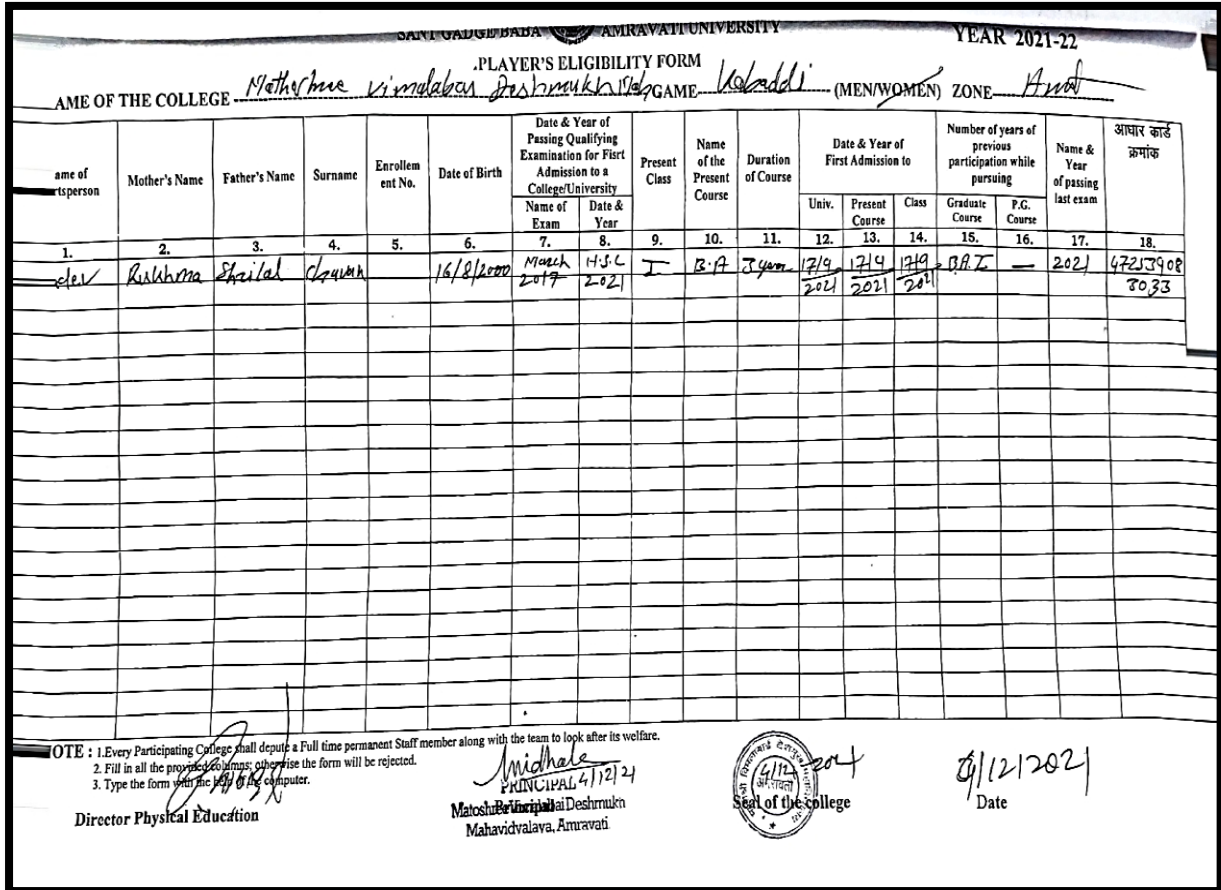 SANT GADGE BABA AMRAVATI UNIVERSITY YEAR 2021-22
.PLAYER'S ELIGIBILITY FORM
AME OF THE COLLEGE Vimalabai Deshmukh GAME Kabaddi (MEN/WOMEN) ZONE Amt
ame of rtsperson
Mother's Name
Father's Name
Surname
Enrollem ent No.
Date of Birth
Date & Year of Passing Qualifying Examination for Fisrt Admission to a College/University
Name of Exam
Date & Year
Present Class
Name of the Present Course
Duration of Course
Date & Year of First Admission to
Univ.
Present Course
Class
Number of years of previous participation while pursuing
Graduate Course
P.G. Course
Name & Year of passing last exam
आधार कार्ड क्रमांक
1. 2. 3. 4. 5. 6. 7. 8. 9. 10. 11. 12. 13. 14. 15. 16. 17. 18.
dev 16/8/2000 March H.S.C I B.A 3 year 17/9 17/9 17/9 B.A.I — 2021 47253908
2017 2021 2021 2021 2021 3033
OTE : 1.Every Participating College shall depute a Full time permanent Staff member along with the team to look after its welfare.
2. Fill in all the provided columns; otherwise the form will be rejected.
3. Type the form with the help of the computer.
PRINCIPAL 4/12/21
Director Physical Education
Matoshree Vimalabai Deshmukh
Principal
Mahavidyalaya, Amravati
4/12
अमरावती
Seal of the college
4/12/2021
Date